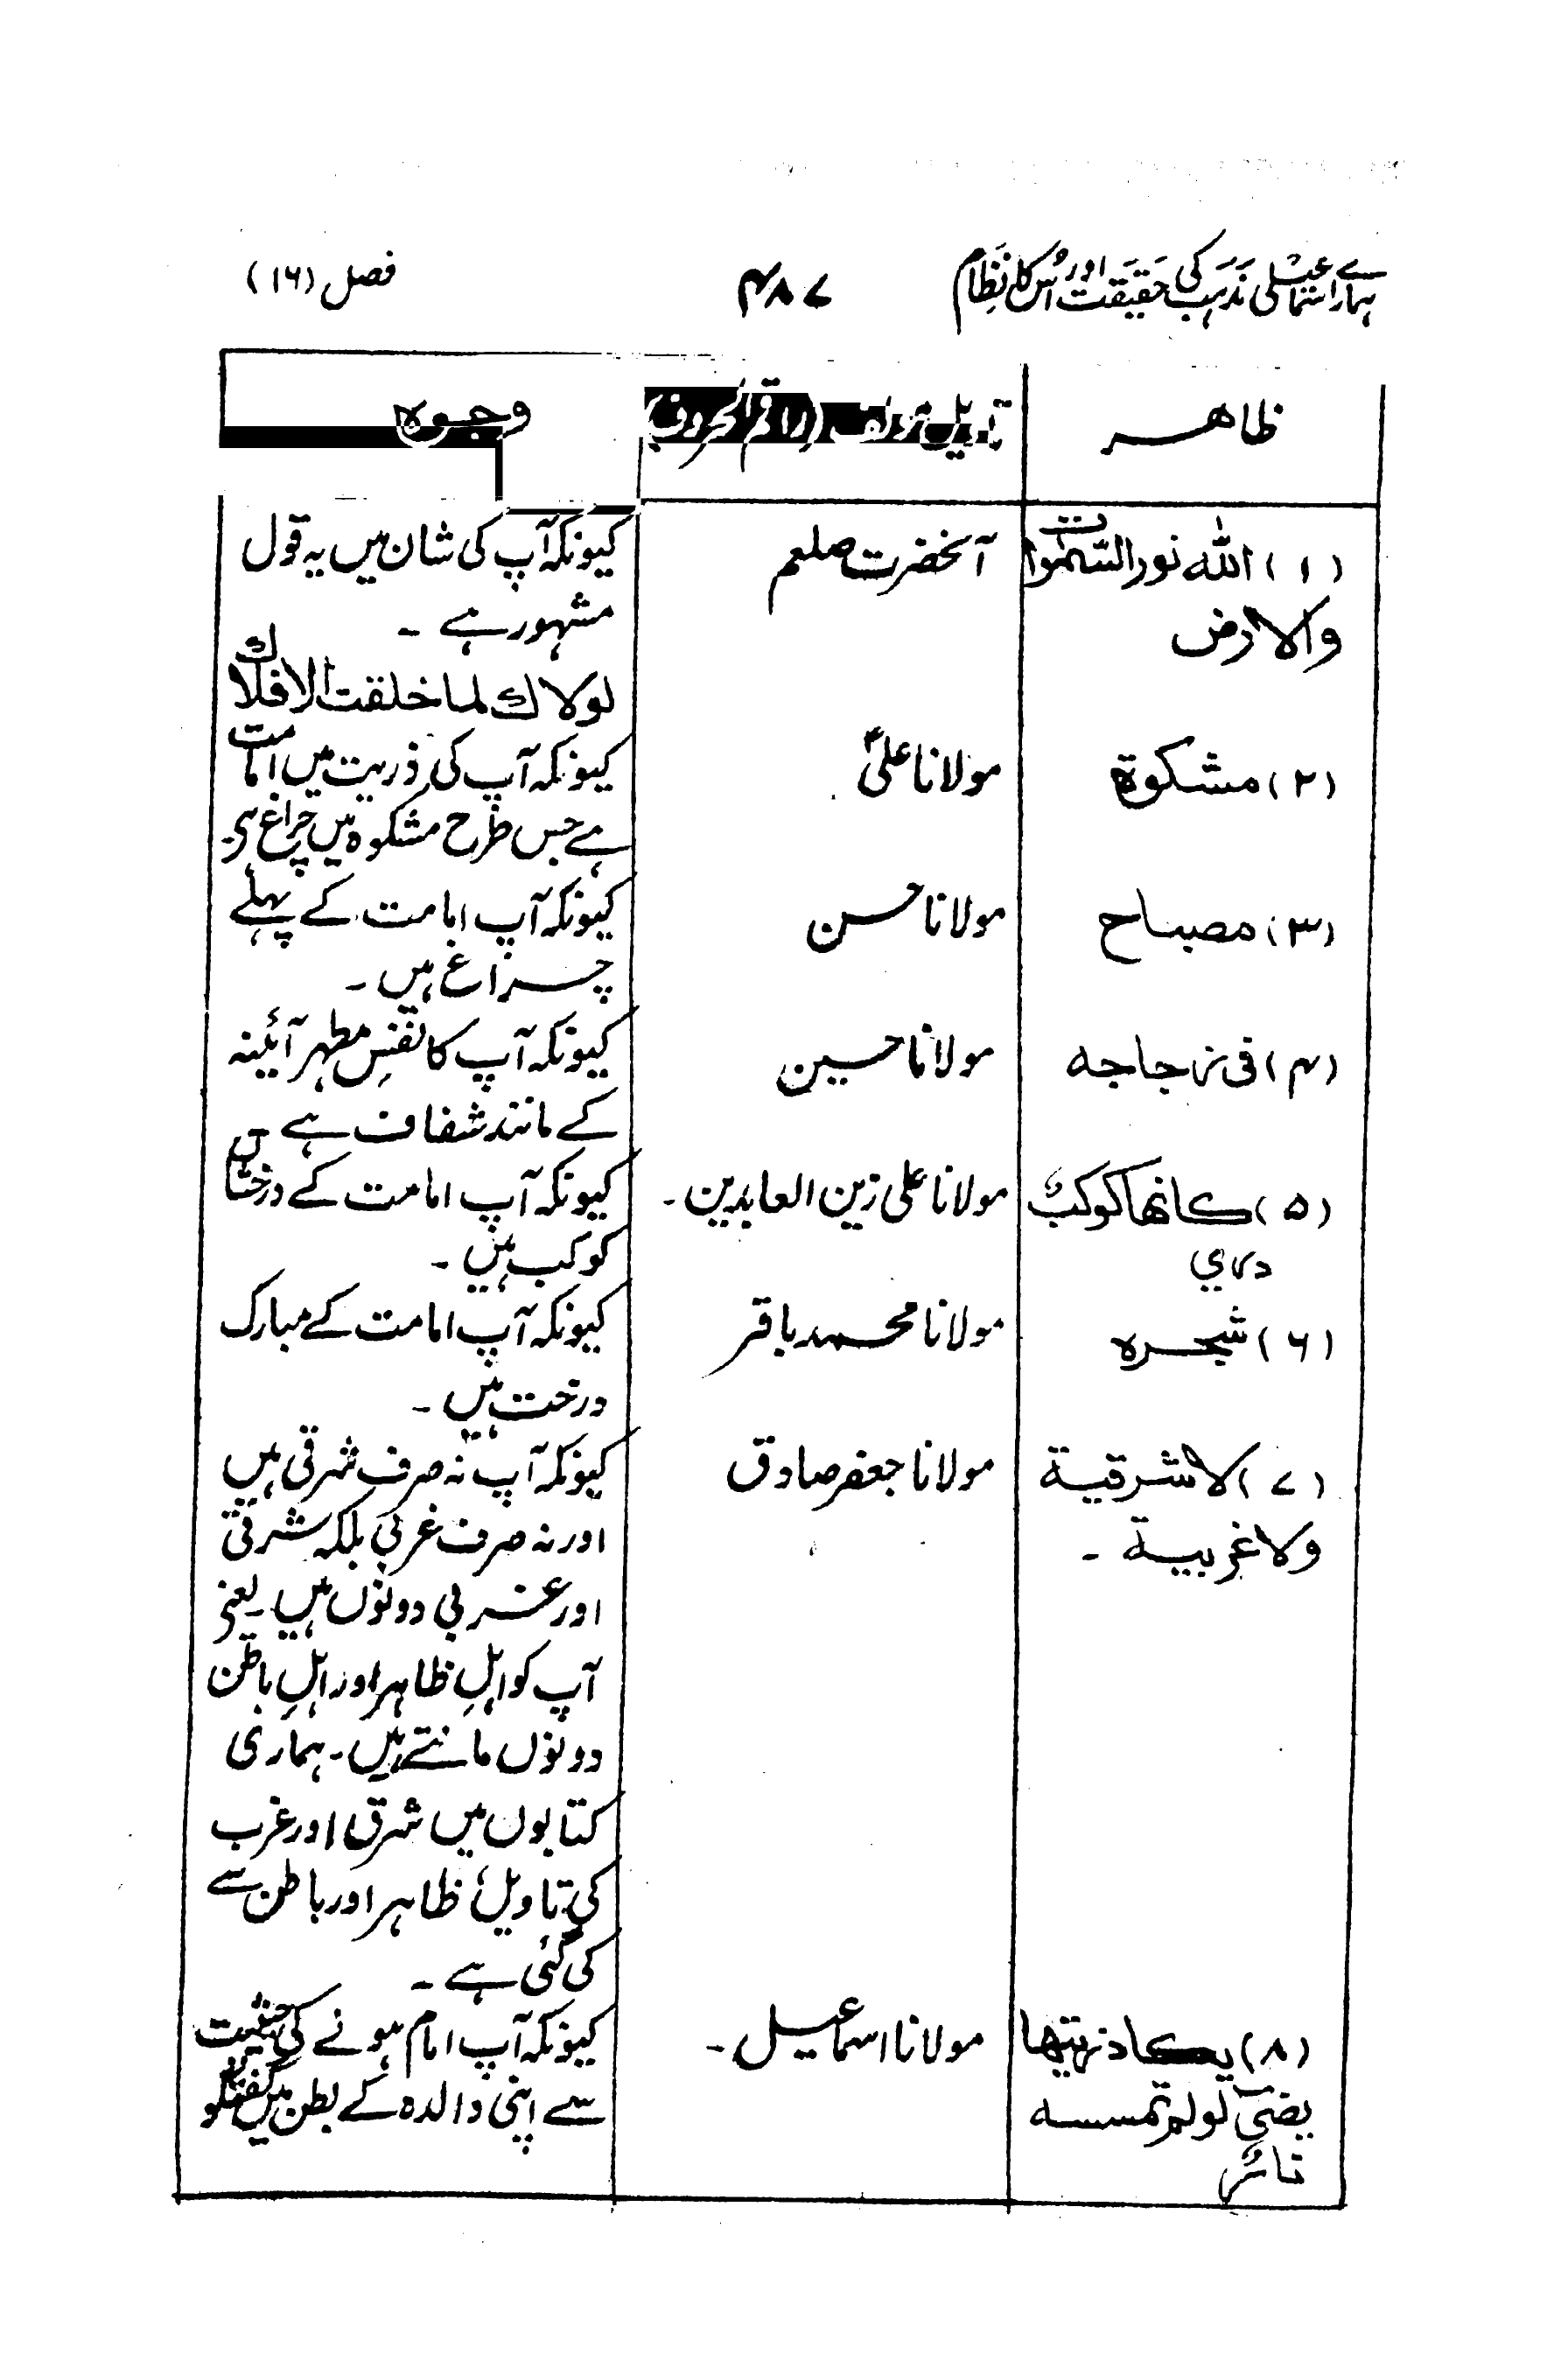 ہمارے اسماعیلی مذہب کی حقیقت اور اُس کا نظام
۴۸۷
فصل (۱۶)
ظاہر
تاویل مؤلف (راقم الحروف)
وجوہ
(۱) اللہ نور السّمٰوات
والارض
آنحضرت صلعم
کیونکہ آپ کی شان میں یہ قول
مشہور ہے ۔
لولاك لما خلقت الافلاك
(۲) مشکوۃ
مولانا علیؑ
کیونکہ آپ کی ذریت میں امامت
ہے جس طرح مشکوہ میں چراغ ہے
(۳) مصباح
مولانا حسن
کیونکہ آپ امامت کے پہلے
چراغ ہیں ۔
(۴) فی زجاجه
مولانا حسین
کیونکہ آپ کا نفسِ مطہر آئینہ
کے مانند شفاف ہے ۔
(۵) کانها کوکبٌ
دري
مولانا علی زین العابدین ۔
کیونکہ آپ امامت کے درخشاں
کوکب ہیں ۔
(۶) شجره
مولانا محمد باقر
کیونکہ آپ امامت کے مبارک
درخت ہیں ۔
(۷) لا شرقیة
ولا غربیة ۔
مولانا جعفر صادق
کیونکہ آپ نہ صرف شرقی ہیں
اور نہ صرف غربی بلکہ شرقی
اور غربی دونوں ہیں ۔ یعنی
آپ کو اہلِ ظاہر اور اہلِ باطن
دونوں مانتے ہیں ۔ ہماری
کتابوں میں شرق اور غرب
کی تاویل ظاہر اور باطن سے
کی گئی ہے ۔
(۸) یکاد زیتها
یضیٓ لولم تمسسه
نارٌ
مولانا اسماعیل ۔
کیونکہ آپ امام ہونے کی حیثیت
سے اپنی والدہ کے بطن میں گفتگو